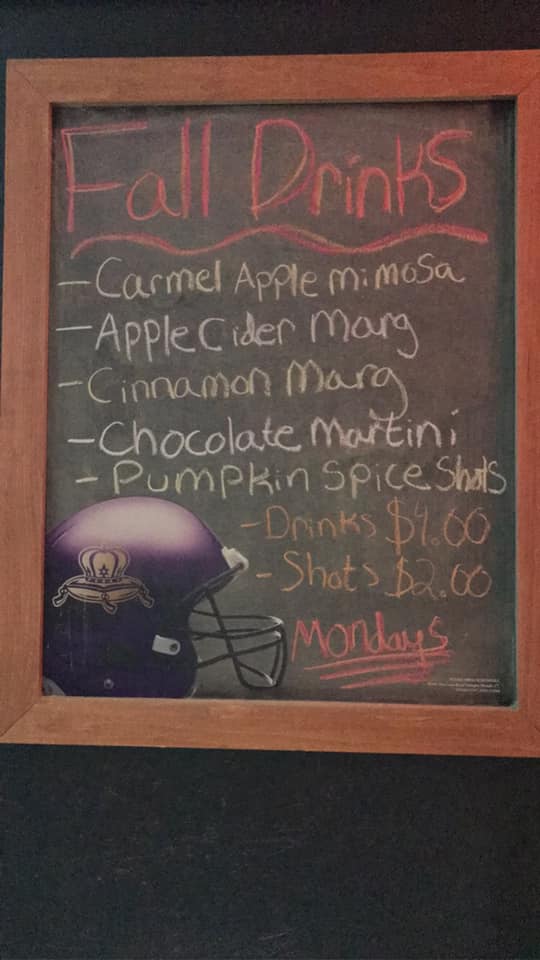 Fall Drinks
- Carmel Apple mimosa
- Apple Cider Marg
- Cinnamon Marg
- Chocolate Martini
- Pumpkin Spice Shots
- Drinks $4.00
- Shots $2.00
Mondays